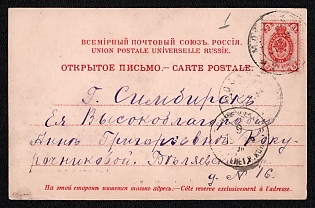 ВСЕМІРНЫЙ ПОЧТОВЫЙ СОЮЗЪ. РОССІЯ.
UNION POSTALE UNIVERSELLE RUSSIE.
ОТКРЫТОЕ ПИСЬМО. — CARTE POSTALE.
Г. Симбирскъ
Ея Высокоблагородію
Аннѣ Григорьевнѣ Коку-
рочниковой. Бѣляевс
д. № 16.
На этой сторонѣ пишется только адресъ. — Côté réservé exclusivement à l'adresse.